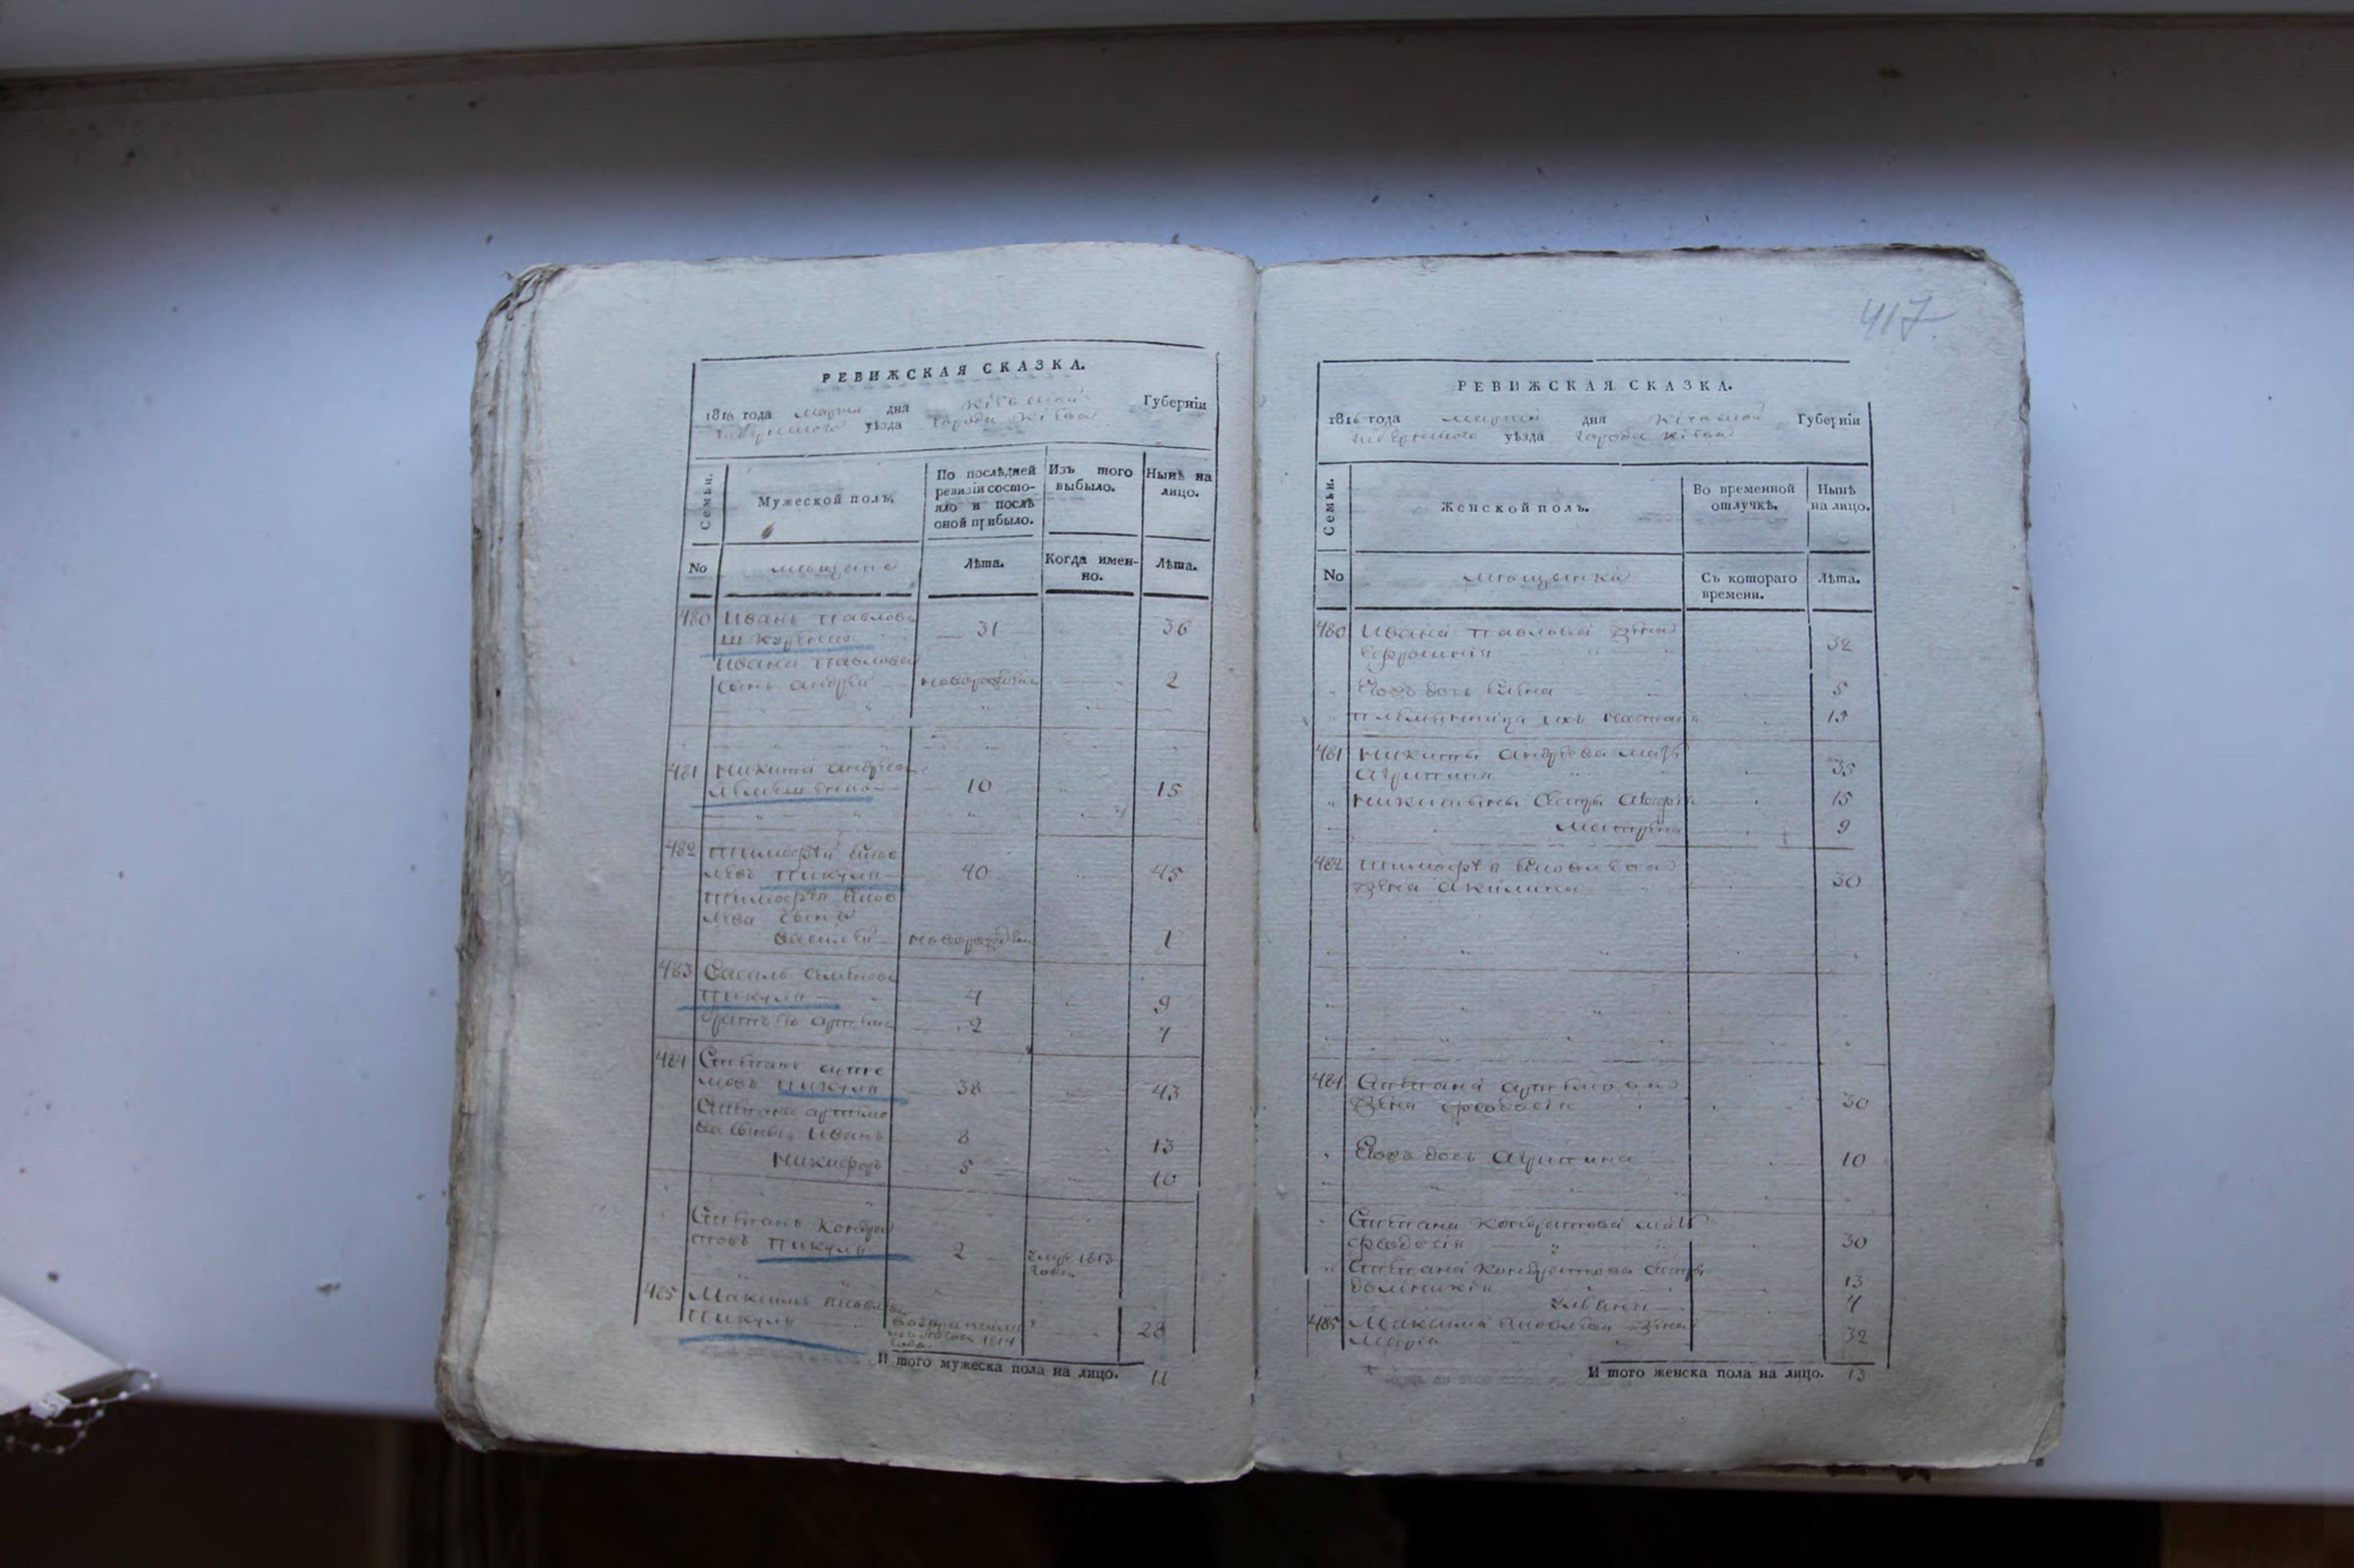 РЕВИЖСКАЯ СКАЗКА.
1816 года марта дня Кіевской Губерніи
губернского уѣзда города Кіева
Семьи.
Мужеской полъ.
По послѣдней ревизіи состояло и послѣ оной прибыло.
Изъ того выбыло.
Нынѣ на лицо.
No
мещане
Лѣта.
Когда именно.
Лѣта.
480 Иванъ Павловъ
31 36
Ивана Павлова
сынъ Андрей новорожденъ 2
481 Никита Андреевъ
10 15
482 Тимофей
Пикуля 40 45
Тимофея
сынъ
Василей новорожденъ 1
483 Василь
Пикуля 4 9
братъ его Артемъ 2 7
484 Степанъ Арте
мовъ Пикуля 38 43
Степана Артемо
ва сыны Иванъ 8 13
Никифоръ 5 10
Степанъ Кондра
товъ Пикуля 2 умре 1813
года
485 Максимъ
Пикуля 28
1814
года
И того мужеска пола на лицо. 11
417
РЕВИЖСКАЯ СКАЗКА.
1816 года марта дня Кіевской Губерніи
губернского уѣзда города Кіева
Семьи.
Женской полъ.
Во временной отлучкѣ.
Нынѣ на лицо.
No
мещанки
Съ котораго времени.
Лѣта.
480 Ивана Павлова жена
Ефросинія 32
Ево дочь Елена 5
племянница ихъ 15
481 Никиты Андреева мать
Агрипина 35
Никитины сестры 15
Матрена 9
482 Тимофея
жена Акилина 30
484 Степана Артемова
жена Феодосія 30
Ево дочь Агрипина 10
Степана Кондратова мать
Феодосія 30
Степана Кондратова сестры
Домникія 13
7
485 Максима жена
Марія 32
И того женска пола на лицо. 13